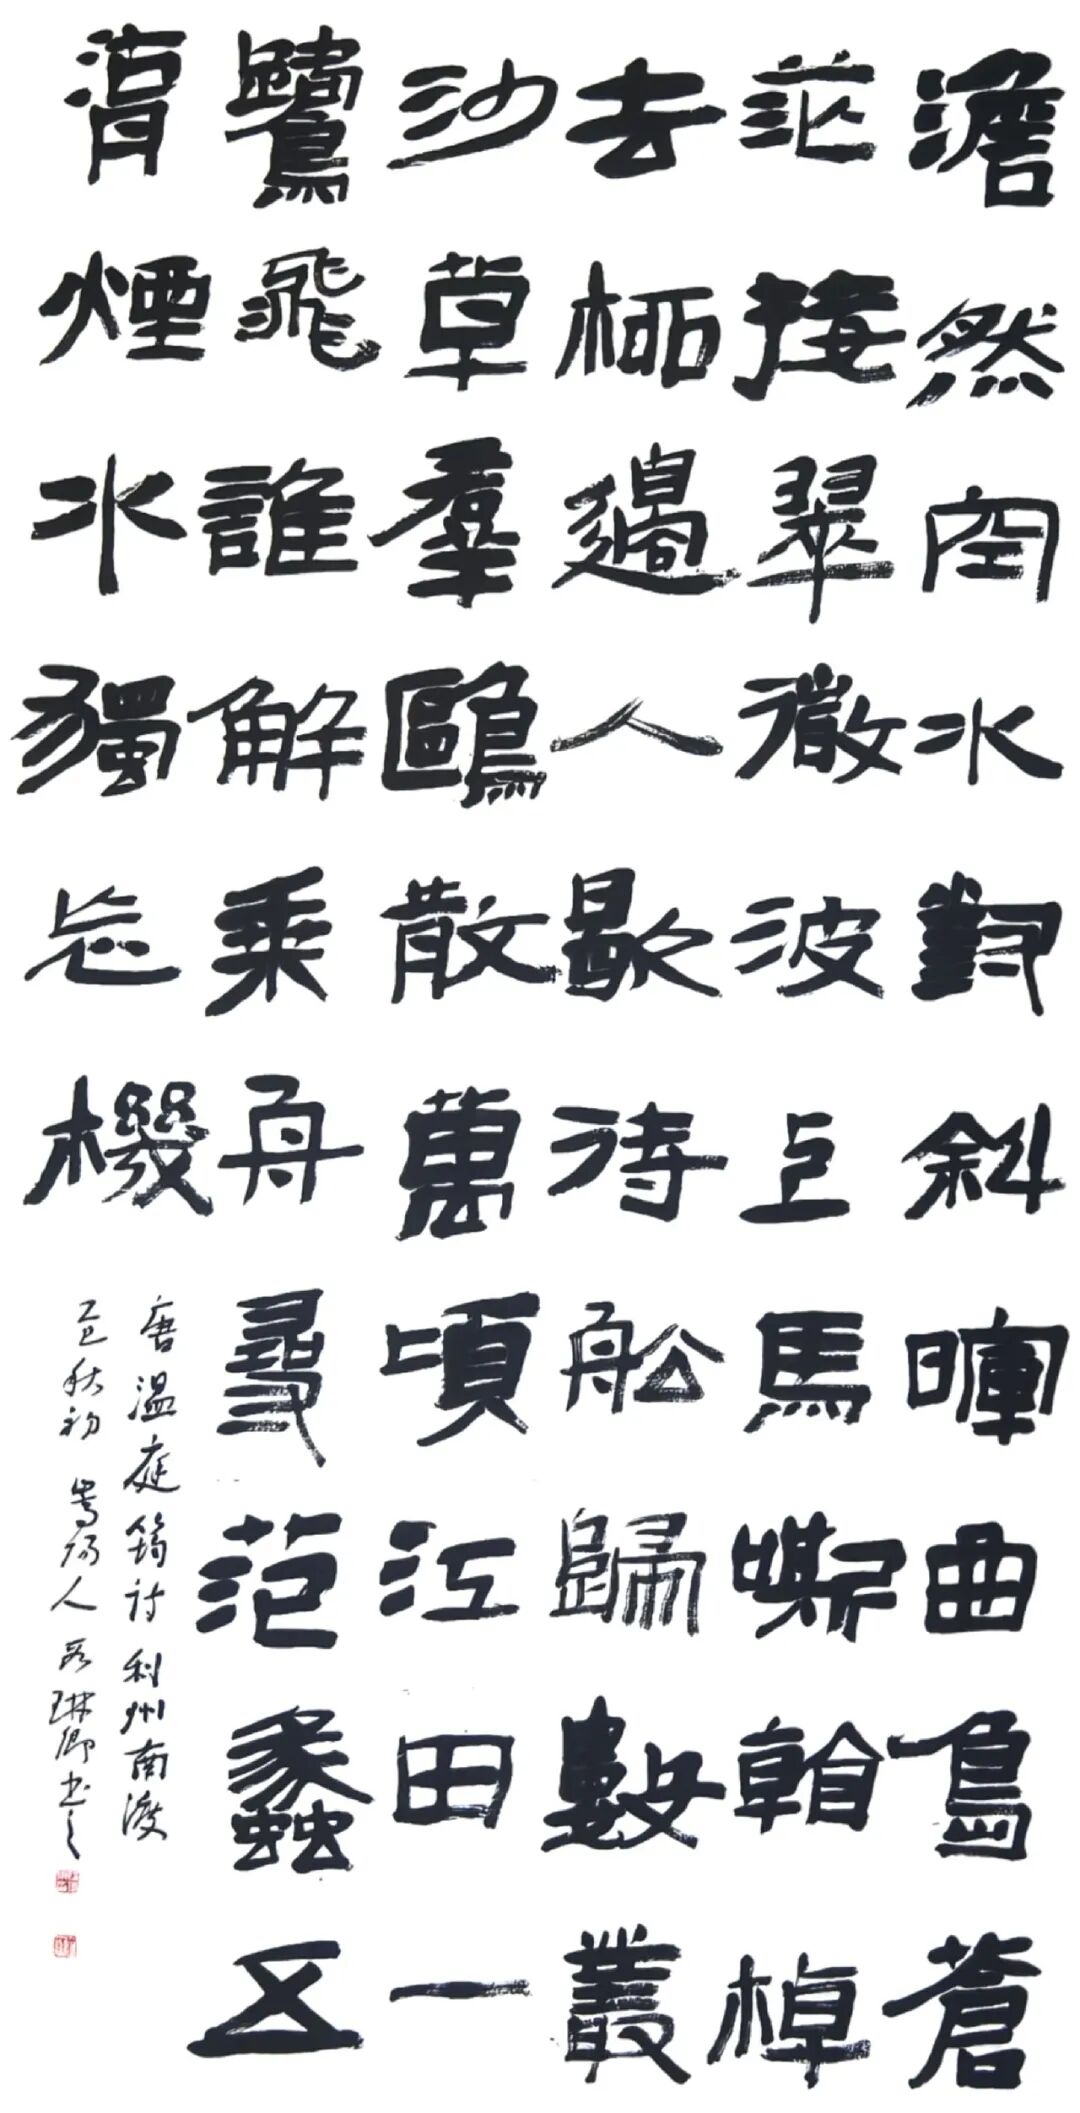 澹然空水對斜暉曲島蒼
茫接翠微波上馬嘶看棹
去柳邊人歇待舩歸數叢
沙草羣鷗散萬頃江田一
鷺飛誰解乘舟尋范蠡五
湖煙水獨忘機
唐温庭筠詩利州南渡
乙巳秋初 嵩陽人 琳卿书之